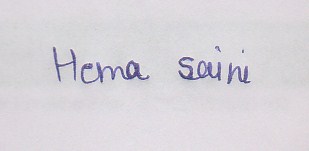 Hema saini